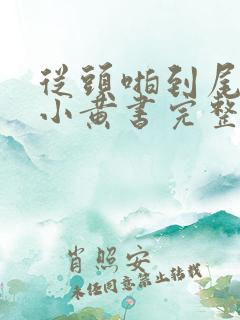 從頭啪到尾
小黄書完整
肖照安
未经同意禁止转载